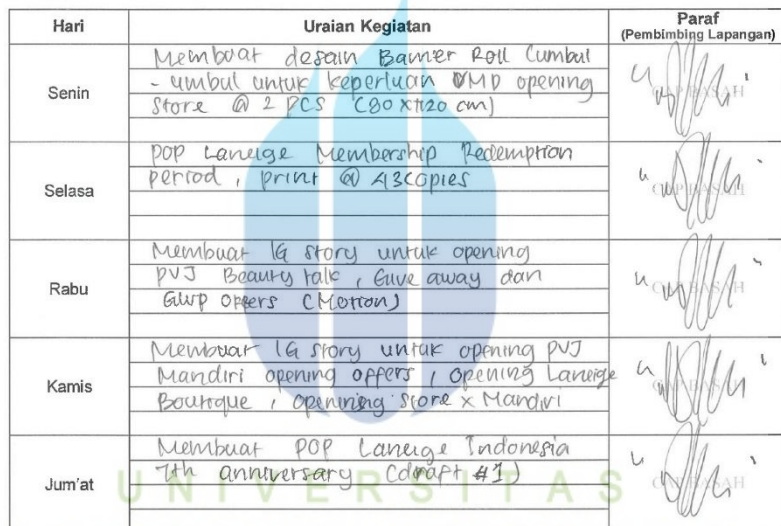 Hari Uraian Kegiatan Paraf
(Pembimbing Lapangan)
Senin
Membuat desain Banner Roll Cumbul
- umbul untuk keperluan VMD opening
store @ 2 PCS (80 x 120 cm)
CAP BASAH
Selasa
POP Laneige Membership Redemption
period, print @ 43 copies
CAP BASAH
Rabu
Membuat IG story untuk opening
PVJ Beauty talk, Give away dan
GWP offers (Motion)
CAP BASAH
Kamis
Membuat IG story untuk opening PVJ
Mandiri opening offers, opening Laneige
Boutique, opening store x Mandiri
CAP BASAH
Jum'at
Membuat POP Laneige Indonesia
7th anniversary (draft #1)
CAP BASAH
UNIVERSITAS